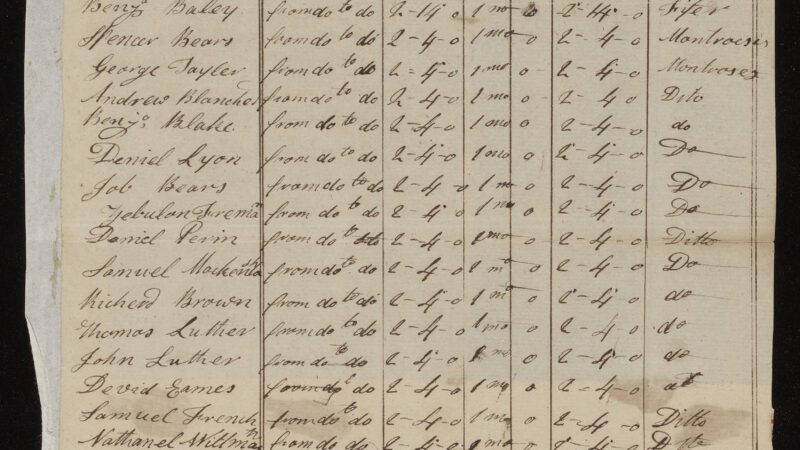 Benjᵃ Baley from do to do 2-14-0 1 mo 0 2-14-0 Fifer
Spencer Bears from do to do 2-4-0 1 mo 0 2-4-0
George Tayler from do to do 2-4-0 1 mo 0 2-4-0
Andrew Blanchel from do to do 2-4-0 1 mo 0 2-4-0 Dito
Benjᵃ Blake from do to do 2-4-0 1 mo 0 2-4-0 do
Deniel Lyon from do to do 2-4-0 1 mo 0 2-4-0 Do
Job Bears from do to do 2-4-0 1 mo 0 2-4-0 Do
Zebulon Fremaⁿ from do to do 2-4-0 1 mo 0 2-4-0 Do
Daniel Perin from do to do 2-4-0 1 mo 0 2-4-0 Ditto
Samuel from do to do 2-4-0 1 mo 0 2-4-0 Do
Richerd Brown from do to do 2-4-0 1 mo 0 2-4-0 do
Thomas Luther from do to do 2-4-0 1 mo 0 2-4-0 do
John Luther from do to do 2-4-0 1 mo 0 2-4-0 do
Devid Eames from do to do 2-4-0 1 mo 0 2-4-0
Samuel French from do to do 2-4-0 1 mo 0 2-4-0 Ditto
Nathanel from do to do 2-4-0 1 mo 0 2-4-0